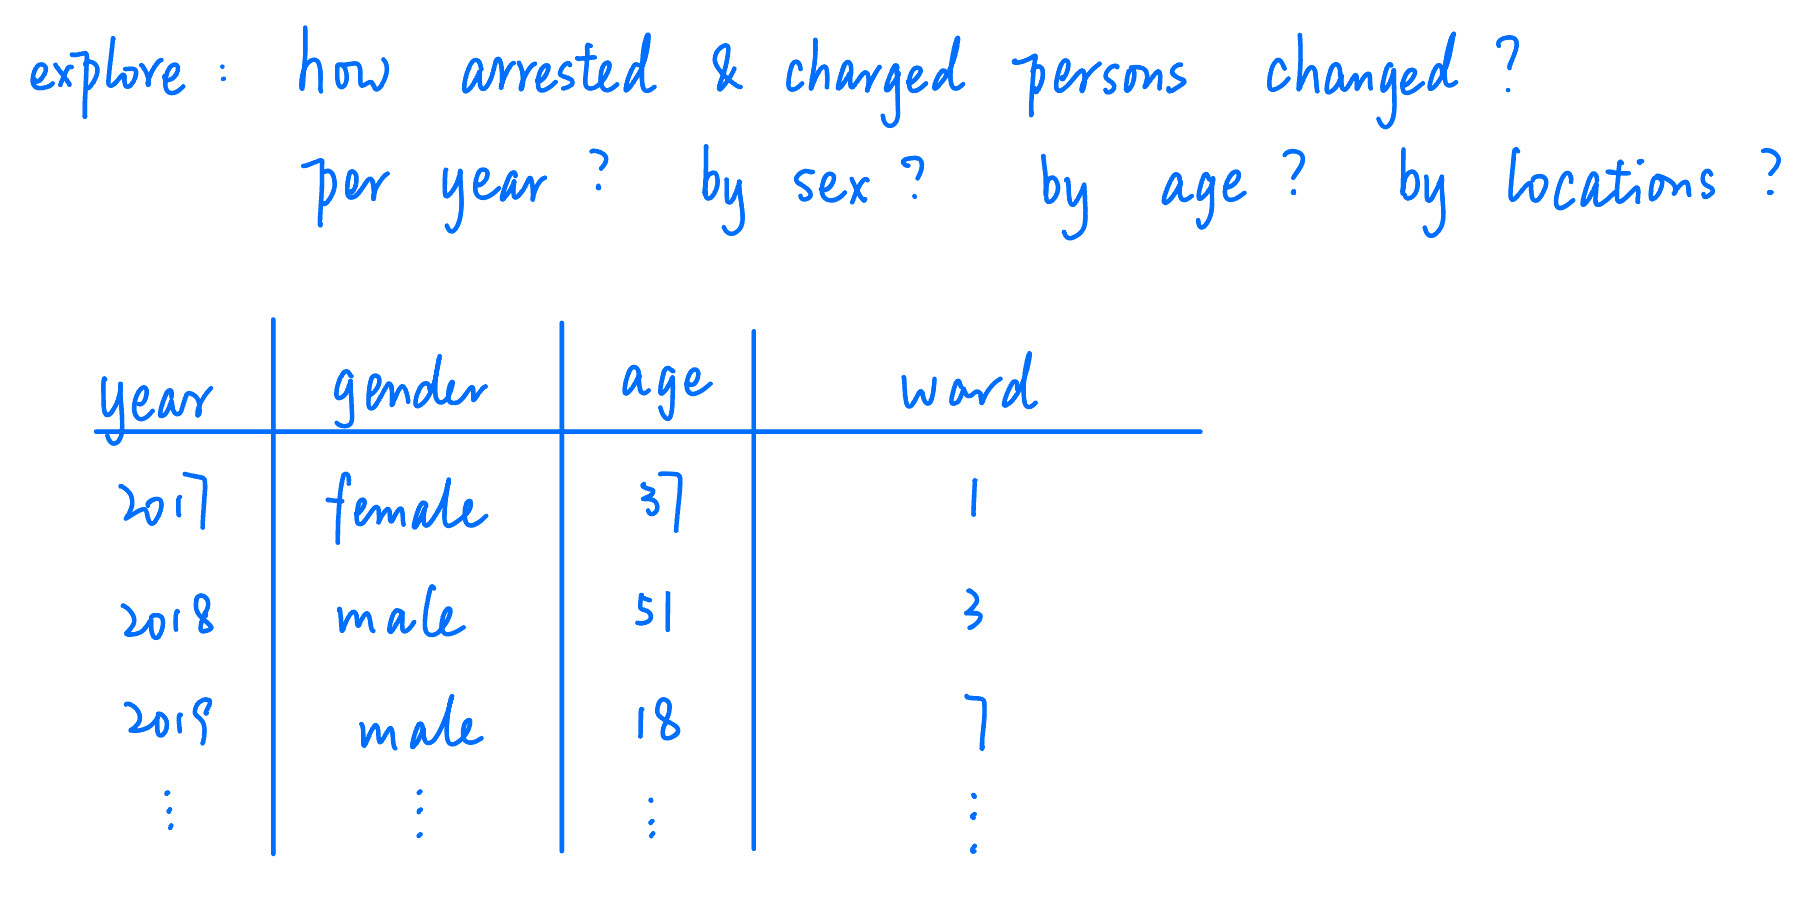 explore : how arrested & charged persons changed ?
per year ? by sex ? by age ? by locations ?
year gender age ward
2017 female 37 1
2018 male 51 3
2019 male 18 7
⋮ ⋮ ⋮ ⋮